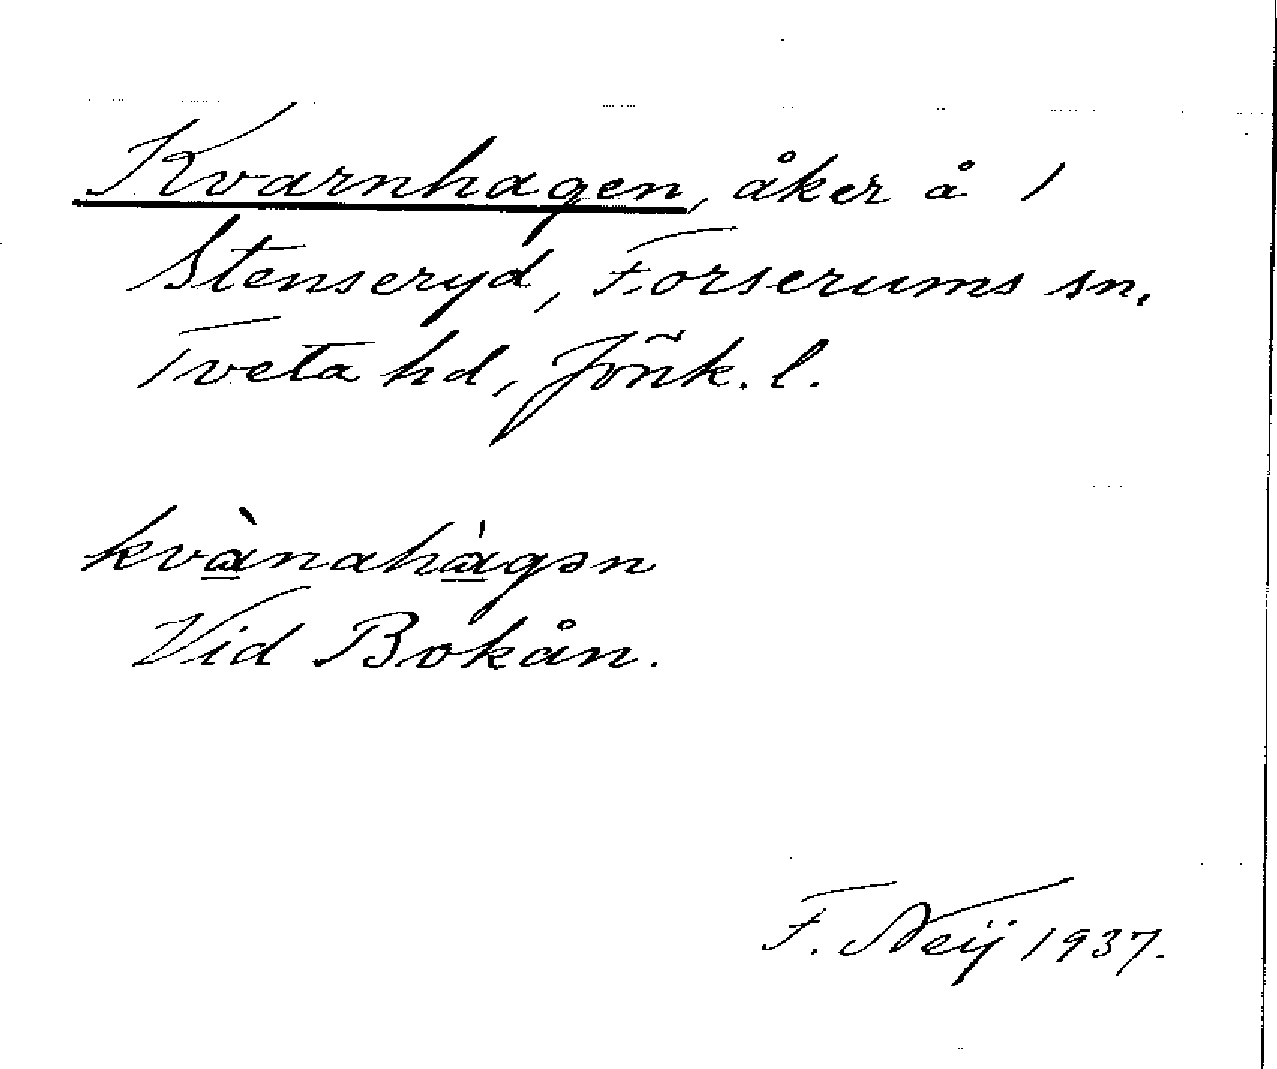 Kvarnhagen, åker å 1
Stenseryd, Forserums sn.
Tveta hd, Jönk. l.
kvànahàgən
Vid Bokån.
F. Neÿ 1937.